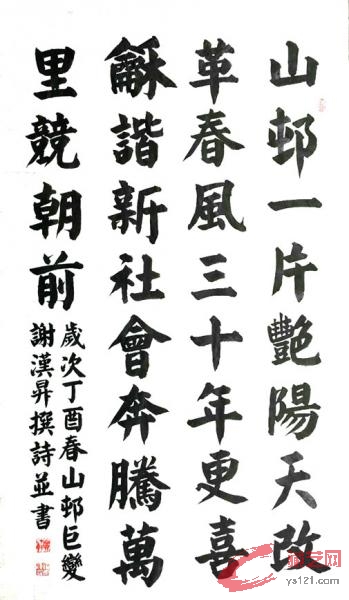 山邨一片艷陽天改
革春風三十年更喜
龢諧新社會奔騰萬
里競朝前
歲次丁酉春山邨巨變
謝漢昇撰詩並書
ys121.com